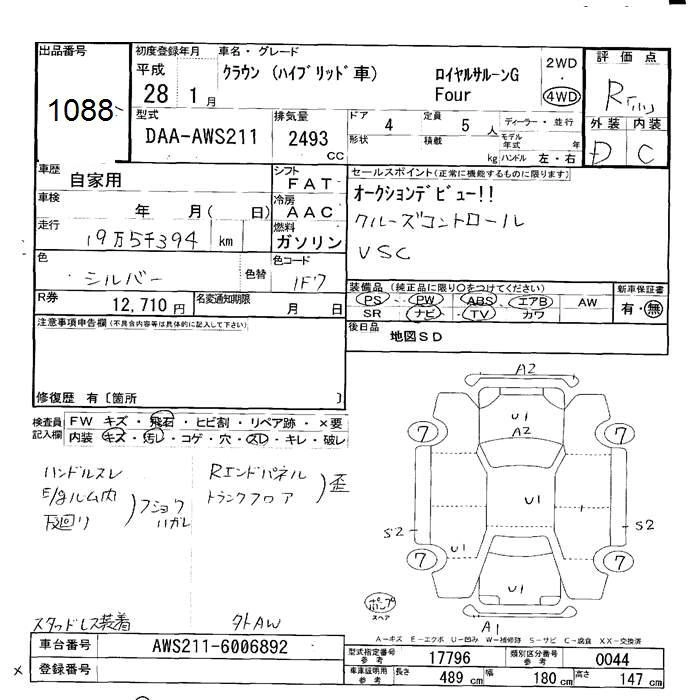 出品番号
1088
初度登録年月
平成
28 1月
車名・グレード
クラウン (ハイブリッド車) ロイヤルサルーンG
Four
2WD
・
4WD
評価点
R
外装 内装
D C
型式
DAA-AWS211
排気量
2493
cc
ドア 4
定員 5 人
ディーラー・並行
形状
積載 kg
モデル年式 年
ハンドル 左・右
車歴
自家用
シフト
FAT
車検
年 月( 日)
冷房
AAC
走行
19万5千394 km
燃料
ガソリン
色
シルバー
色替
色コード
1F7
R券
12,710 円
名変通知期限
月 日
セールスポイント(正常に機能するものに限ります)
オークションデビュー!!
クルーズコントロール
VSC
装備品 (純正品に限り○をつけてください)
PS PW ABS エアB AW
SR ナビ TV カワ
新車保証書
有・無
後日品
地図SD
注意事項申告欄(不具合内容等は具体的に記入して下さい)
修復歴 有〔箇所 〕
検査員記入欄
FW キズ・飛石・ヒビ割・リペア跡・×要
内装 キズ・汚レ・コゲ・穴・スレ・キレ・破レ
ハンドルスレ
E/gルム内
下回り
フショク
ハガレ
Rエンドパネル
トランクフロア
歪
スタッドレス装着
外AW
A2
U1
A2
7
7
U1
S2
S2
U1
7
7
U1
A1
ポンプ
スペア
A−キズ E−エクボ U−凹み W−補修跡 S−サビ C−腐食 XX−交換済
車台番号
AWS211-6006892
登録番号
×
型式指定番号
参考
17796
類別区分番号
参考
0044
車庫証明用
参考
長さ 489 cm
幅 180 cm
高さ 147 cm